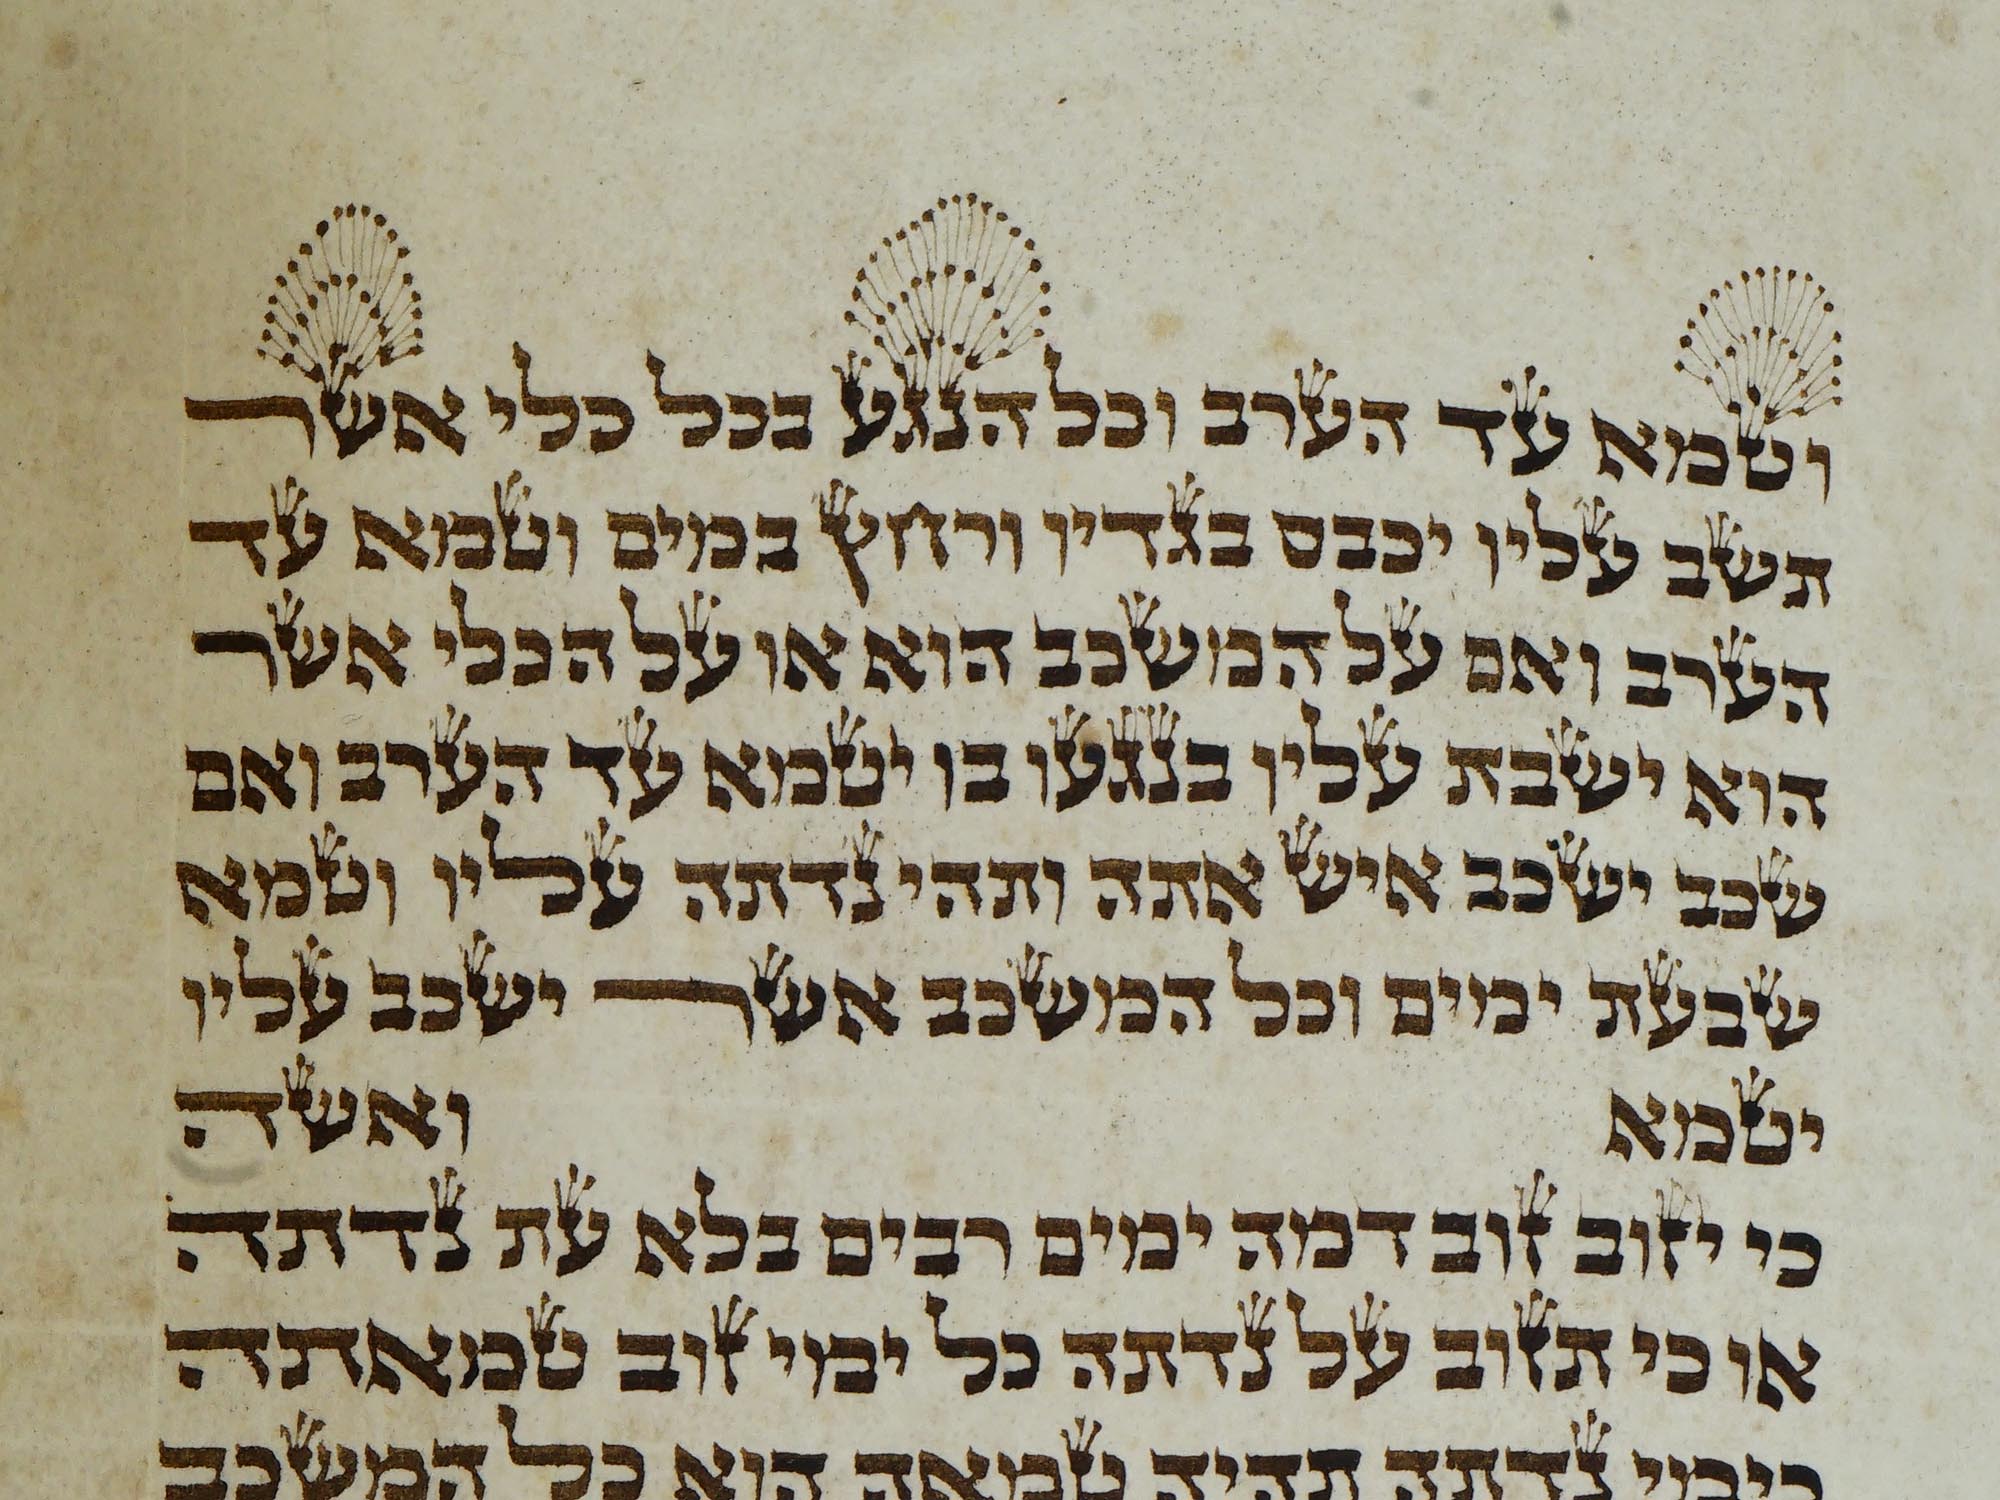 וטמא עד הערב וכל הנגע בכל כלי אשר
תשב עליו יכבס בגדיו ורחץ במים וטמא עד
הערב ואם על המשכב הוא או על הכלי אשר
הוא ישבת עליו בנגעו בו יטמא עד הערב ואם
שכב ישכב איש אתה ותהי נדתה עליו וטמא
שבעת ימים וכל המשכב אשר ישכב עליו
יטמא ואשה
כי יזוב זוב דמה ימים רבים בלא עת נדתה
או כי תזוב על נדתה כל ימי זוב טמאתה
כימי נדתה תהיה טמאה הוא כל המשכב